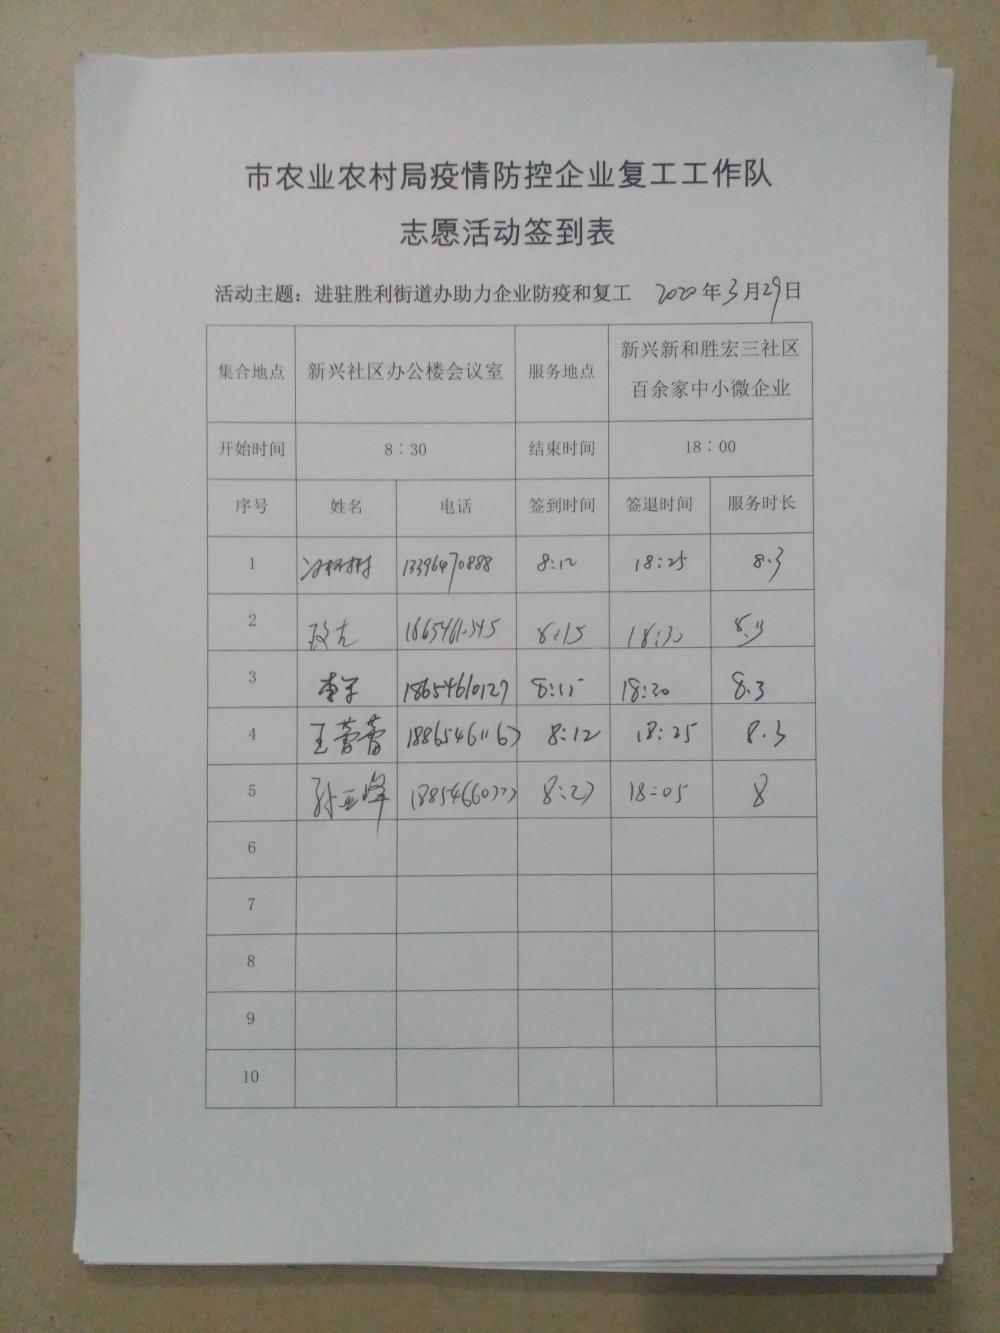 市农业农村局疫情防控企业复工工作队
志愿活动签到表
活动主题：进驻胜利街道办助力企业防疫和复工 2020年3月29日
集合地点 新兴社区办公楼会议室 服务地点 新兴新和胜宏三社区
百余家中小微企业
开始时间 8：30 结束时间 18：00
序号 姓名 电话 签到时间 签退时间 服务时长
1 13396470888 8:12 18:25 8.3
2 8:15 18:30
3 18654610127 18:20 8.3
4 王蕾蕾 18865461167 8:12 18:25 8.3
5 孙亚峰 8:27 18:05 8
6
7
8
9
10